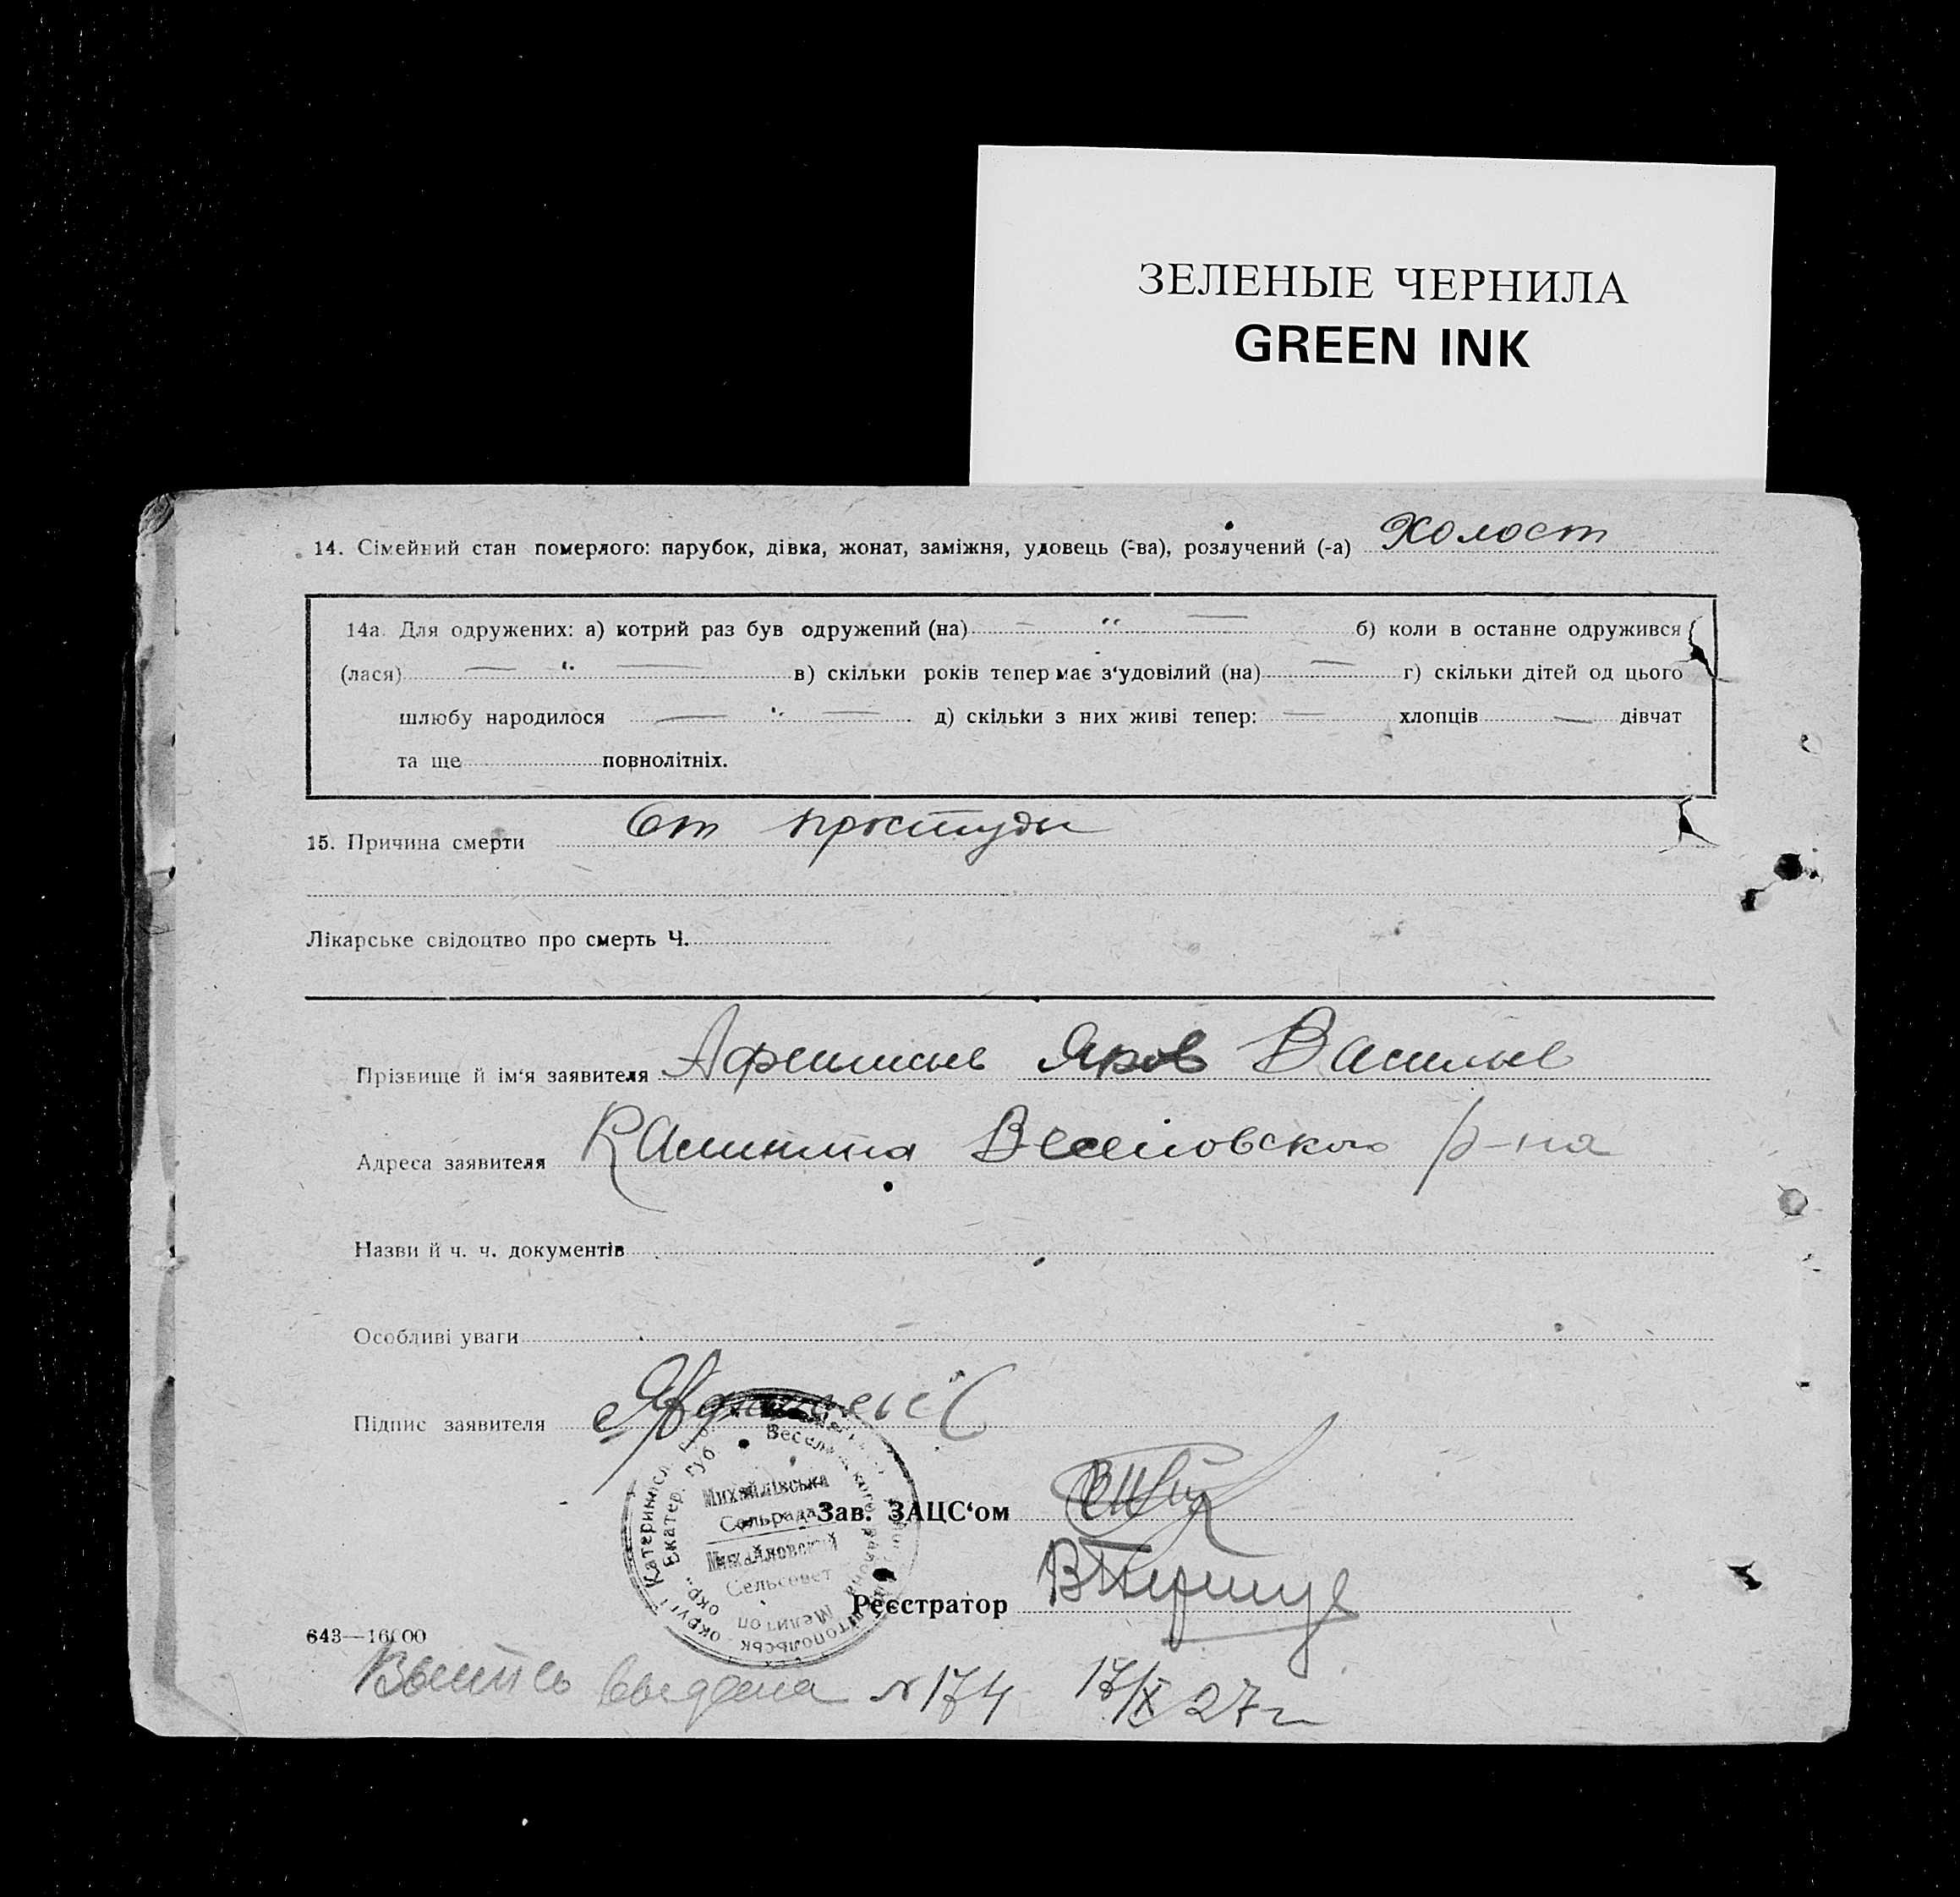 ЗЕЛЕНЫЕ ЧЕРНИЛА
GREEN INK
14. Сімейний стан померлого: парубок, дівка, жонат, заміжня, удовець (-ва), розлучений (-а) Холост
14а. Для одружених: а) котрий раз був одружений (на) — " — б) коли в останнє одружився
(лася) — " — в) скільки років тепер має з'удовілий (на) — г) скільки дітей од цього
шлюбу народилося — " — д) скільки з них живі тепер: — хлопців — дівчат
та ще повнолітніх.
15. Причина смерти От простуды
Лікарське свідоцтво про смерть Ч.
Прізвище й ім'я заявителя Яков Василье
Адреса заявителя Веселовского р-на
Назви й ч. ч. документів
Особливі уваги
Підпис заявителя
Михайлівська
Сельрада
Михайловский
Сельсовет
Зав. ЗАЦС'ом
Реєстратор
643—16000
Выпись выдана №174 17/X 27 г